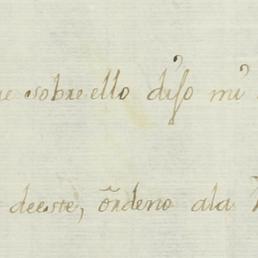 e sobre ello dijo mi
deeste, ordeno ala